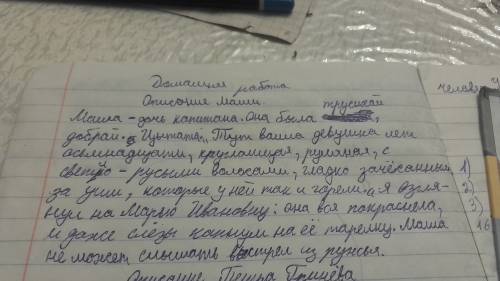 Домашняя работа
Описание Маши.
Маша - дочь капитана. Она была трусихой,
доброй. Цытата: "Тут вошла девушка лет
осьмнадцати, круглолицая, румяная, с
светло-русыми волосами, гладко зачёсанными
за уши, которые у ней так и горели. я взгля-
нул на Марью Ивановну: она вся покраснела,
и даже слёзы капнули на её тарелку. Маша
не может слышать выстрел из ружья.
Описание Петра Гринёва
челове
1)
2)
3)
16